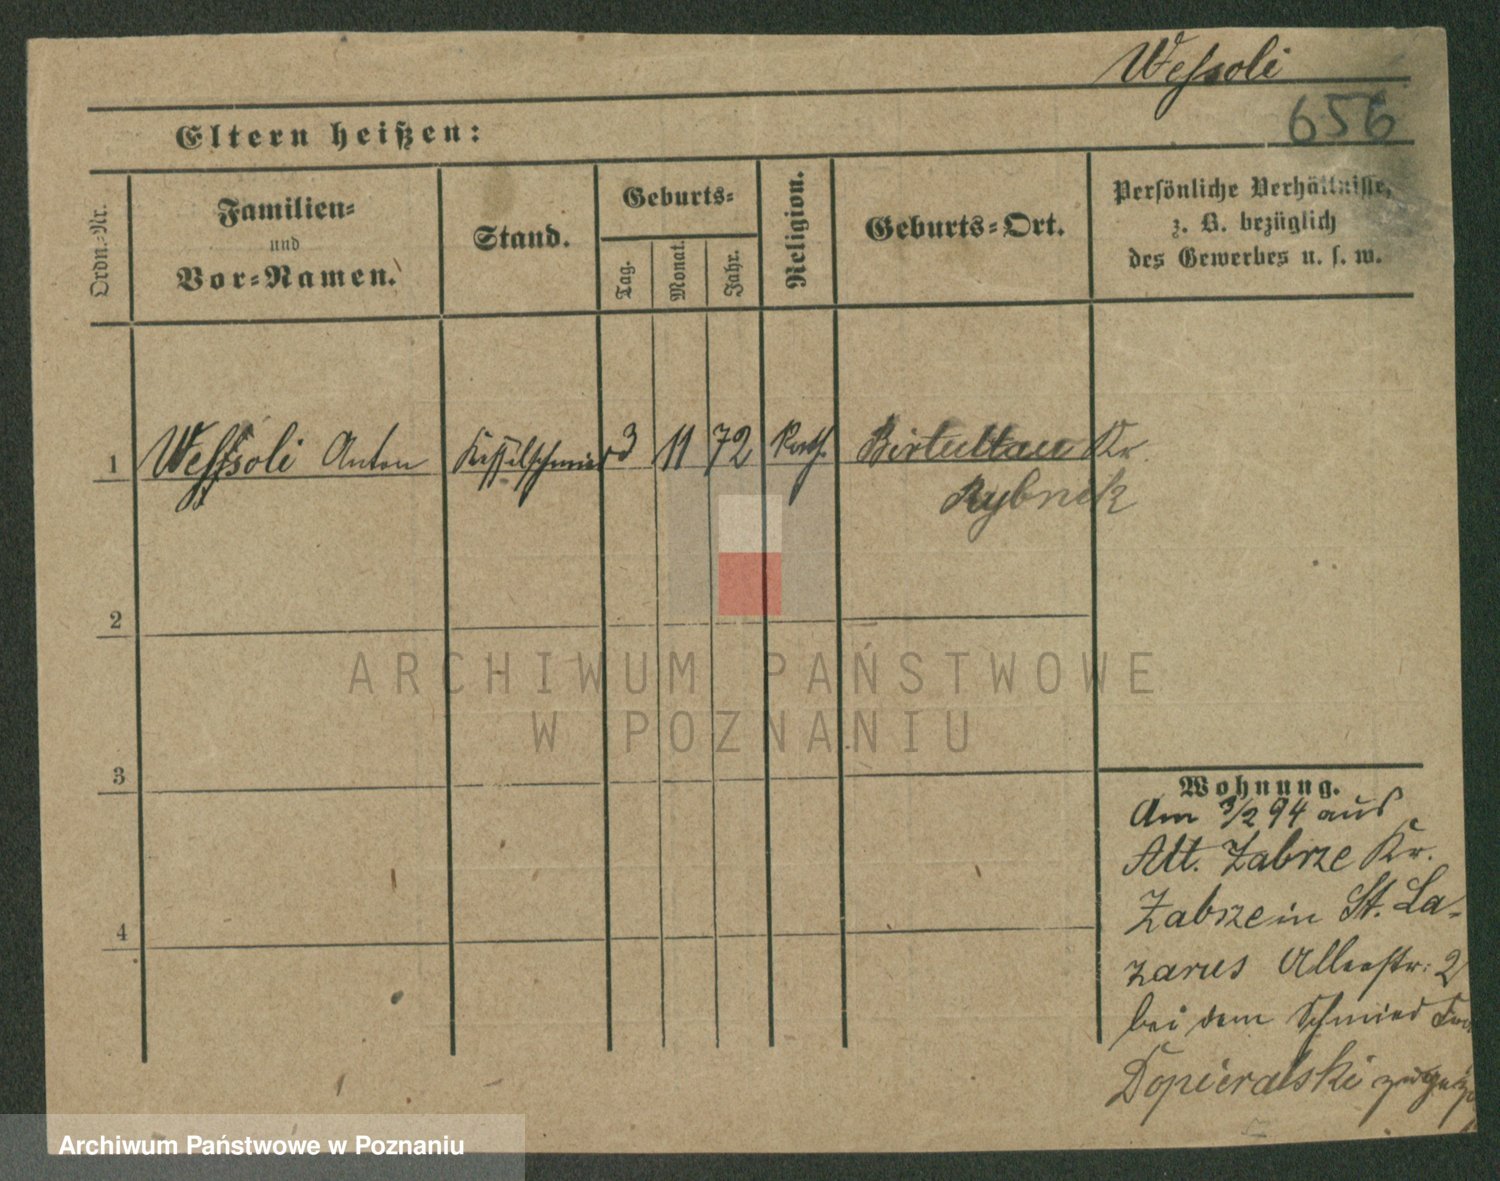 Wessoli
656
Eltern heißen:
Ordn.-Nr.
Familien-
und
Vor-Namen.
Stand.
Geburts-
Tag.
Monat.
Jahr.
Religion.
Geburts-Ort.
Persönliche Verhältnisse,
z. B. bezüglich
des Gewerbes u. s. w.
1 Wessoli Anton Kesselschmied 3 11 72 Kath. Birtultau Kr.
Rybnik
2
3
4
Wohnung.
Am 3/2 94 aus
Alt. Zabrze Kr.
Zabrze in St. La-
zarus Allerstr. 2
bei dem Schmied
Dopieralski
ARCHIWUM PAŃSTWOWE
W POZNANIU
Archiwum Państwowe w Poznaniu